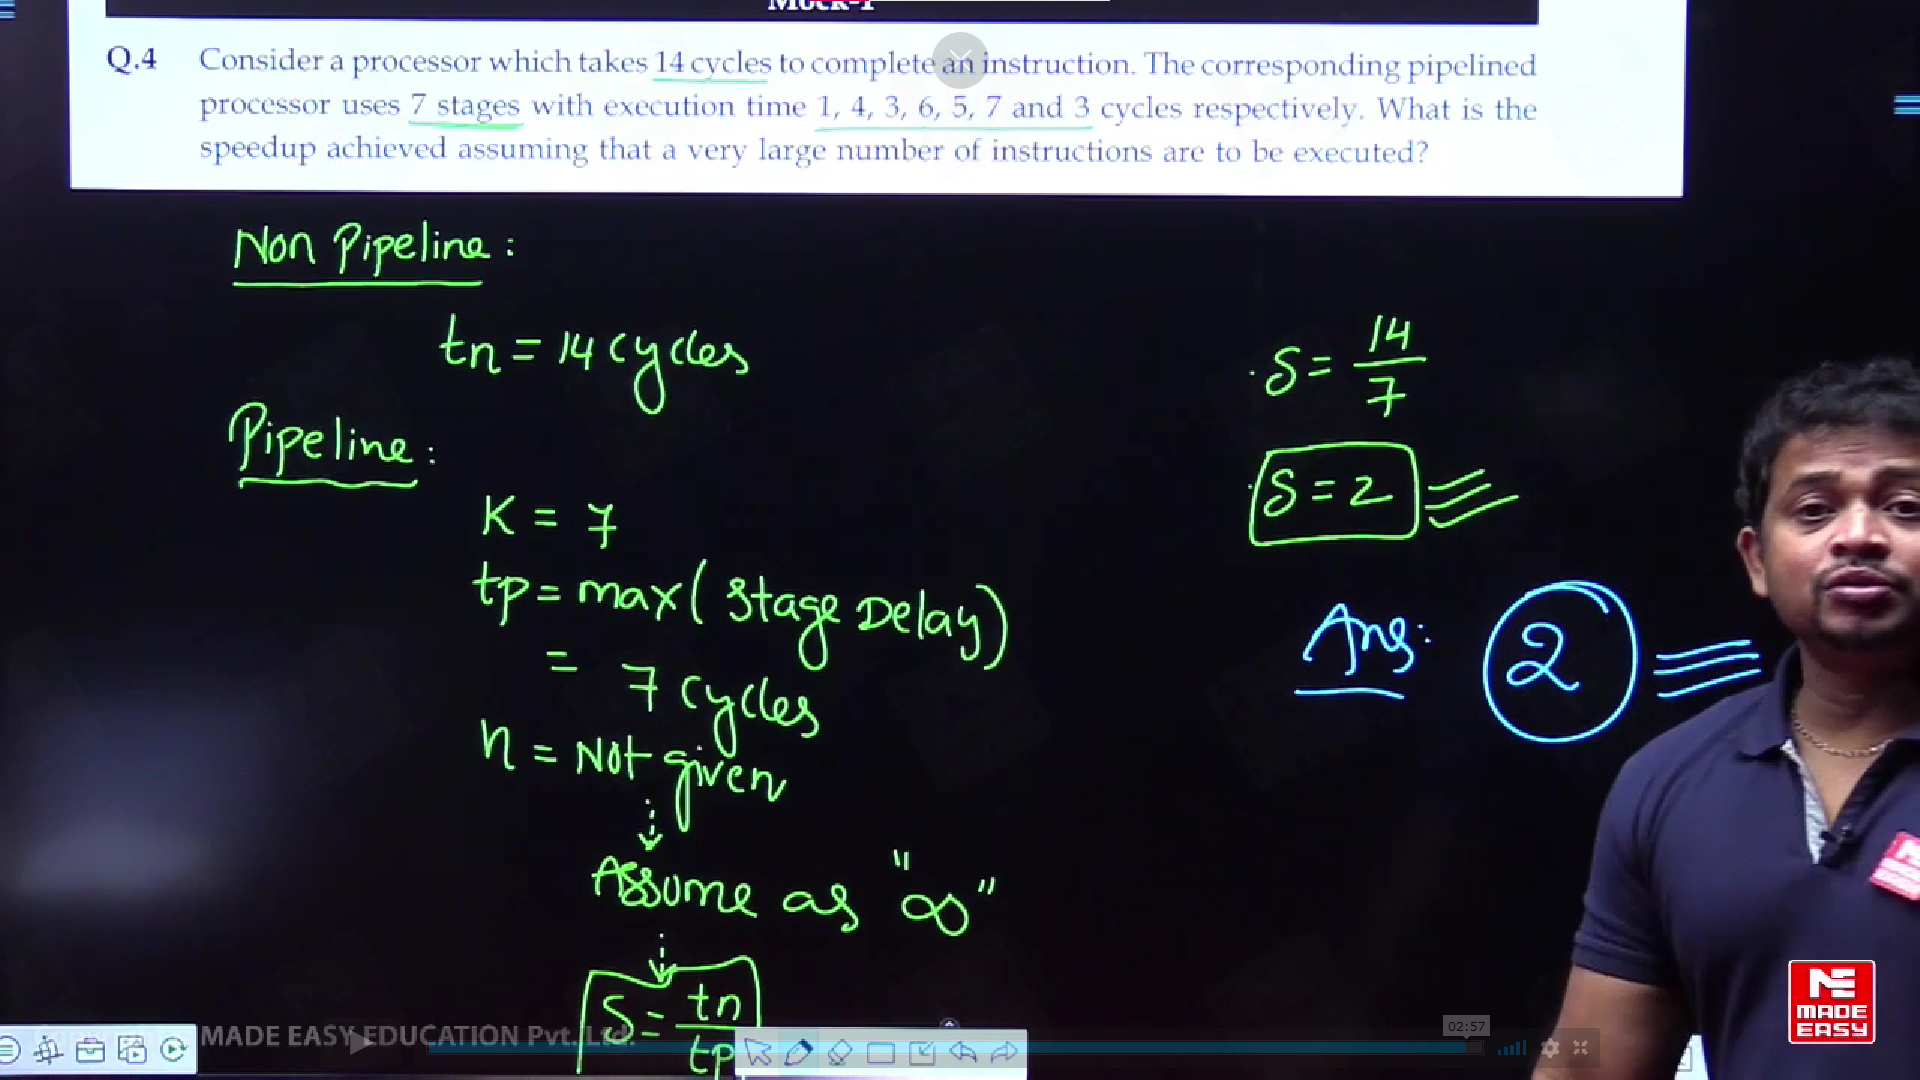 Mock-1
Q.4 Consider a processor which takes 14 cycles to complete an instruction. The corresponding pipelined
processor uses 7 stages with execution time 1, 4, 3, 6, 5, 7 and 3 cycles respectively. What is the
speedup achieved assuming that a very large number of instructions are to be executed?
Non Pipeline:
tn = 14 cycles
Pipeline:
K = 7
tp = max( Stage Delay)
= 7 cycles
n = Not given
Assume as "∞"
S = tn
tp
S = 14
7
S = 2
Ans: 2
MADE EASY EDUCATION Pvt. Ltd.
02:57
MADE
EASY